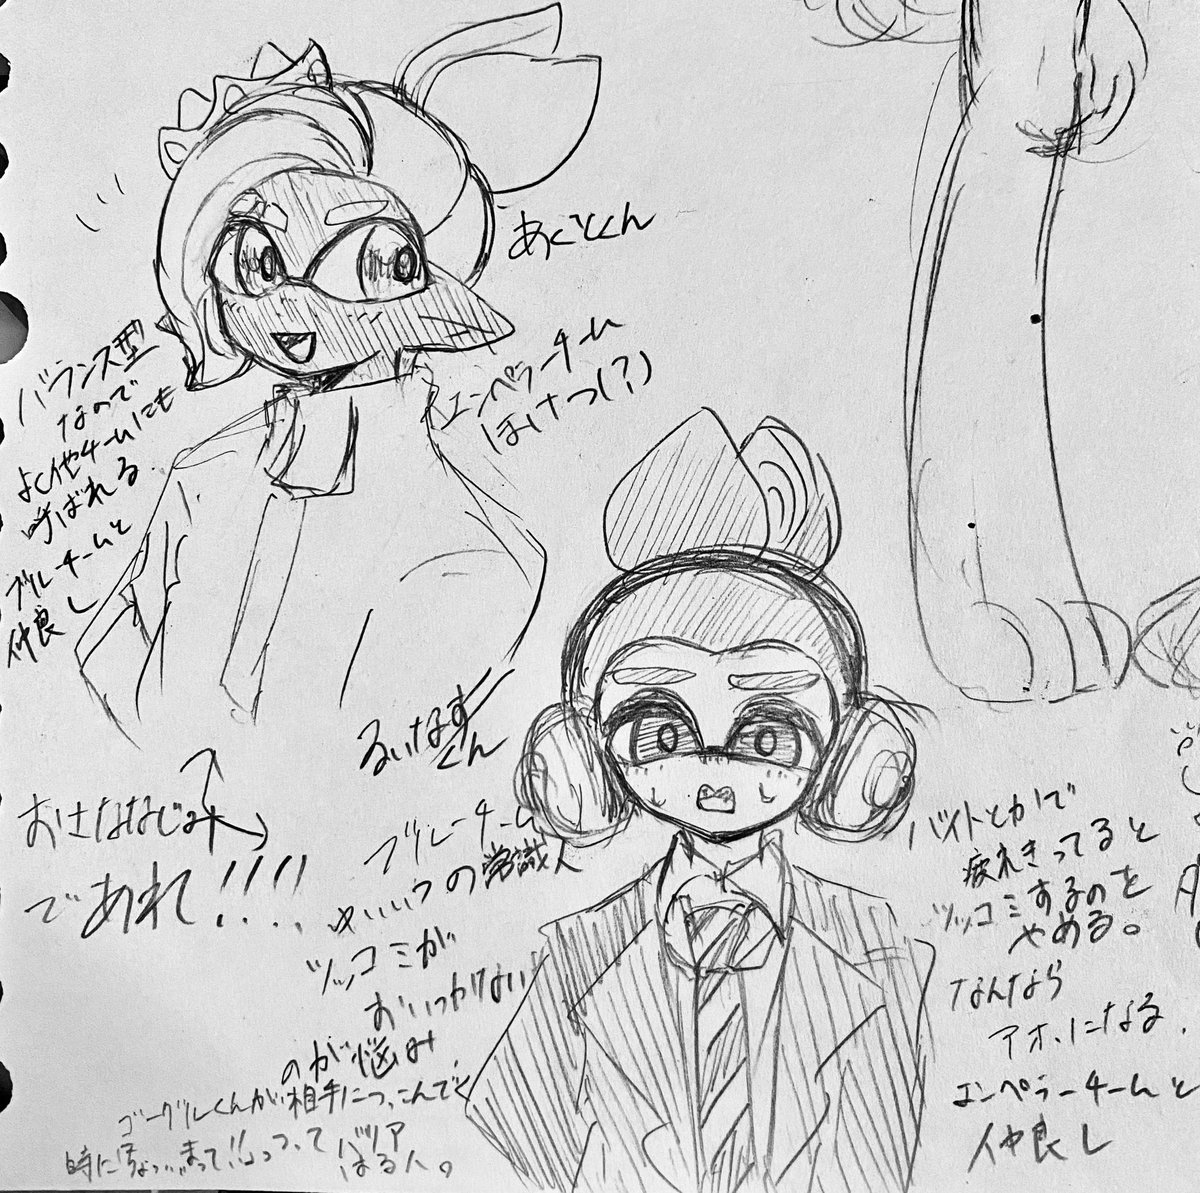 あくとくん
エンペラーチーム
ほけつ(?)
バランス型
なので
よく他チームにも
呼ばれる
ブルーチームと
仲良し
おさななじみ
であれ!!!!
るいなす
くん
ブルーチーム
ゆいいつの常識人
ツッコミが
おいつかない
のが悩み
ゴーグルくんが相手につっこんでく
時に「ちょっ…まって!!」っつって
バリア
はる人。
バイトとかで
疲れきってると
ツッコミするのを
やめる。
なんなら
アホになる.
エンペラーチームと
仲良し